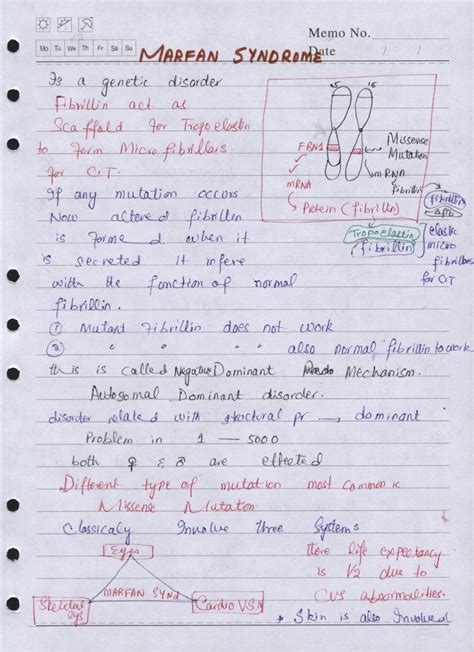 Memo No.
Mo Tu We Th Fr Sa Su
Date / /
MARFAN SYNDROME
Is a genetic disorder
Fibrillin act as
Scaffold for Tropoelastin
to Form Micro fibrillars
for C.T.
If any mutation occurs
Now altered fibrillin
is formed when it
is secreted it infere
with the function of normal
fibrillin.
15 15
FBN1
Missense
Mutation
mRNA
mRNA
fibrillin
Protein (fibrillin)
fibrillin
Tropoelastin
fibrillin
elastic
micro
fibrillars
for C.T
① Mutant Fibrillin does not work
② " " " also normal fibrillin to work
this is called Negative Dominant Mechanism.
Autosomal Dominant disorder.
disorder related with structural pr → dominant
Problem in 1 — 5000
both ♀ & ♂ are effected
Different type of mutation most common is
Missense Mutation.
Classicaly Involve three Systems
Eyes
MARFAN SYND
Skeletal
Sys
Cardio VS
there life expectancy
is 1/2 due to
CVS abnormalities.
* Skin is also Involved